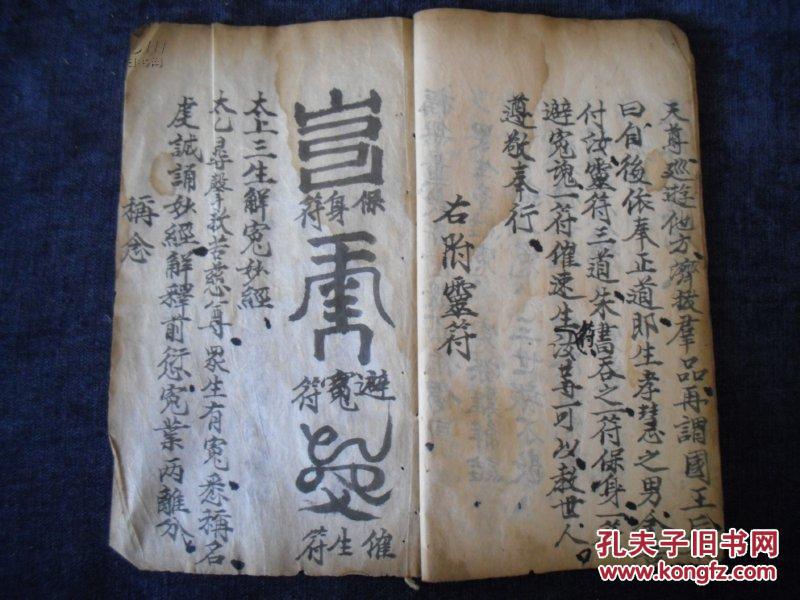 天尊巡遊他方濟拔羣品再謂國王
曰自後依奉正道即生孝慧之男今
付汝靈符三道朱書吞之一符保身一符
避寃魂一符催速生汝等可以救世人
遵敬奉行
右附靈符
保身符
避寃符
催生符
太上三生解寃妙經
太乙尋聲救苦慈尊眾生有寃悉稱名
虔誠誦妙經解釋前愆寃業兩離分
稱念
孔夫子旧书网
www.kongfz.com